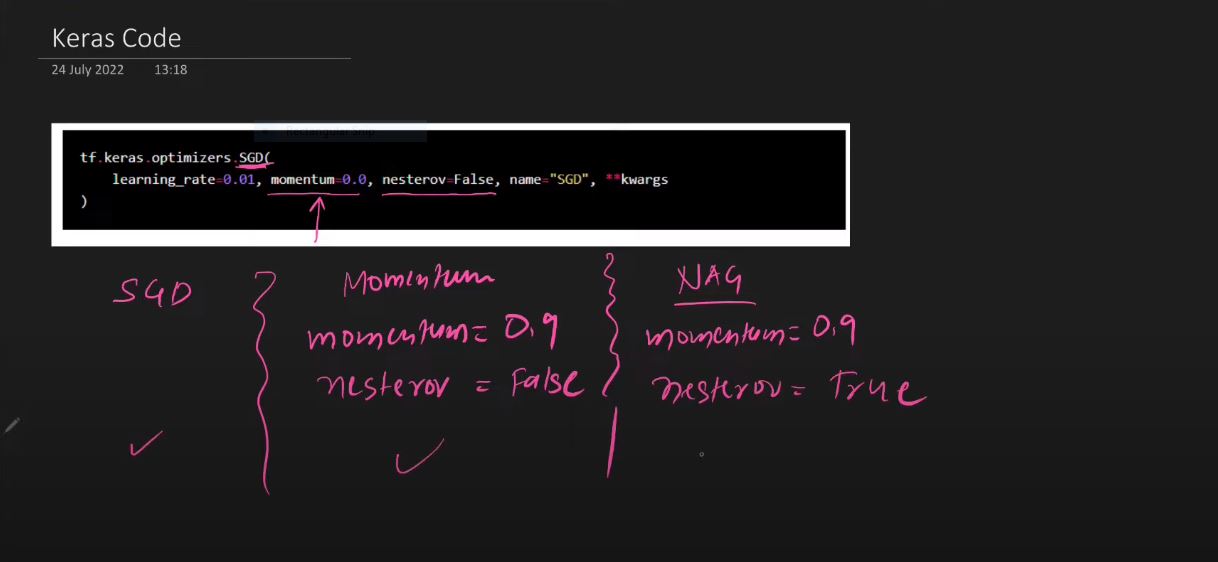 Keras Code
24 July 2022 13:18
Rectangular Snip
tf.keras.optimizers.SGD(
learning_rate=0.01, momentum=0.0, nesterov=False, name="SGD", **kwargs
)
SGD
Momentum
momentum= 0.9
nesterov = False
NAG
momentum= 0.9
nesterov= True